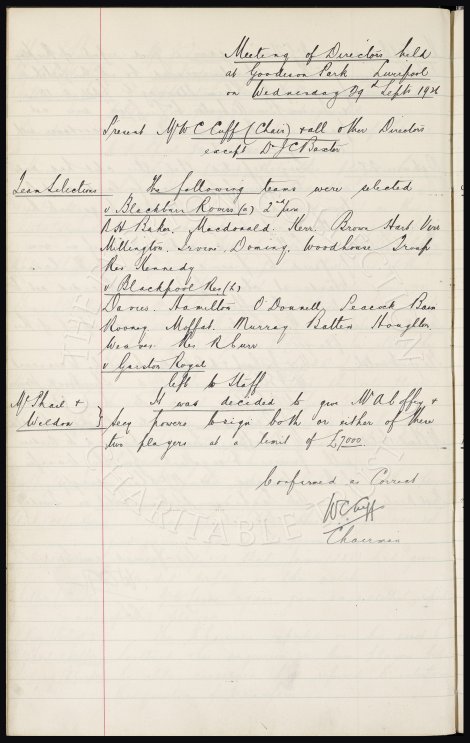 Meeting of Directors held
at Goodison Park Liverpool
on Wednesday 29th Septr 1926
Present Mr W C Cuff (Chair) & all other Directors
except Dr J C Baxter
Team Selections The following teams were selected
v Blackburn Rovers (a) 2nd
B H Baker. Macdonald. Kerr. Brown Hart Virr
Millington. Irvine. Doming. Woodhouse Troup
Res Kennedy
v Blackpool Res (h)
Davies. Hamilton O'Donnell Peacock Bain
Rooney. Moffat. Murray Batten Houghton
Weaver. Res R Curr
v Garston Royal
left to Staff
McPhail & It was decided to give Mr A Coffey &
Weldon } Secy powers to sign both or either of these
two players at a limit of £7000.
Confirmed as Correct
W C Cuff
Chairman
THE
CHARITABLE